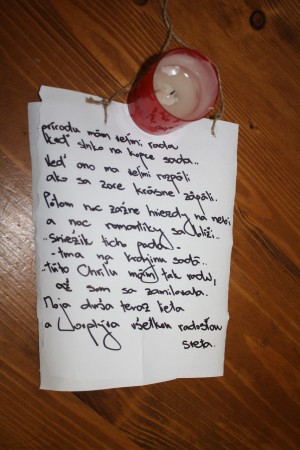 prírodu mám veľmi rada
keď slnko na kopce sadá..
keď ono ma veľmi rozpáli
ako sa zore krásne zapáli.
zažne hviezdy na nebi
a noc romantiky sa blíži..
- sniežik ticho padá -
- tma na krajinu sadá..
- túto chvíľu mám tak rada,
až som sa zamilovala.
Moja duša teraz lieta
a všetkou radosťou
sveta.